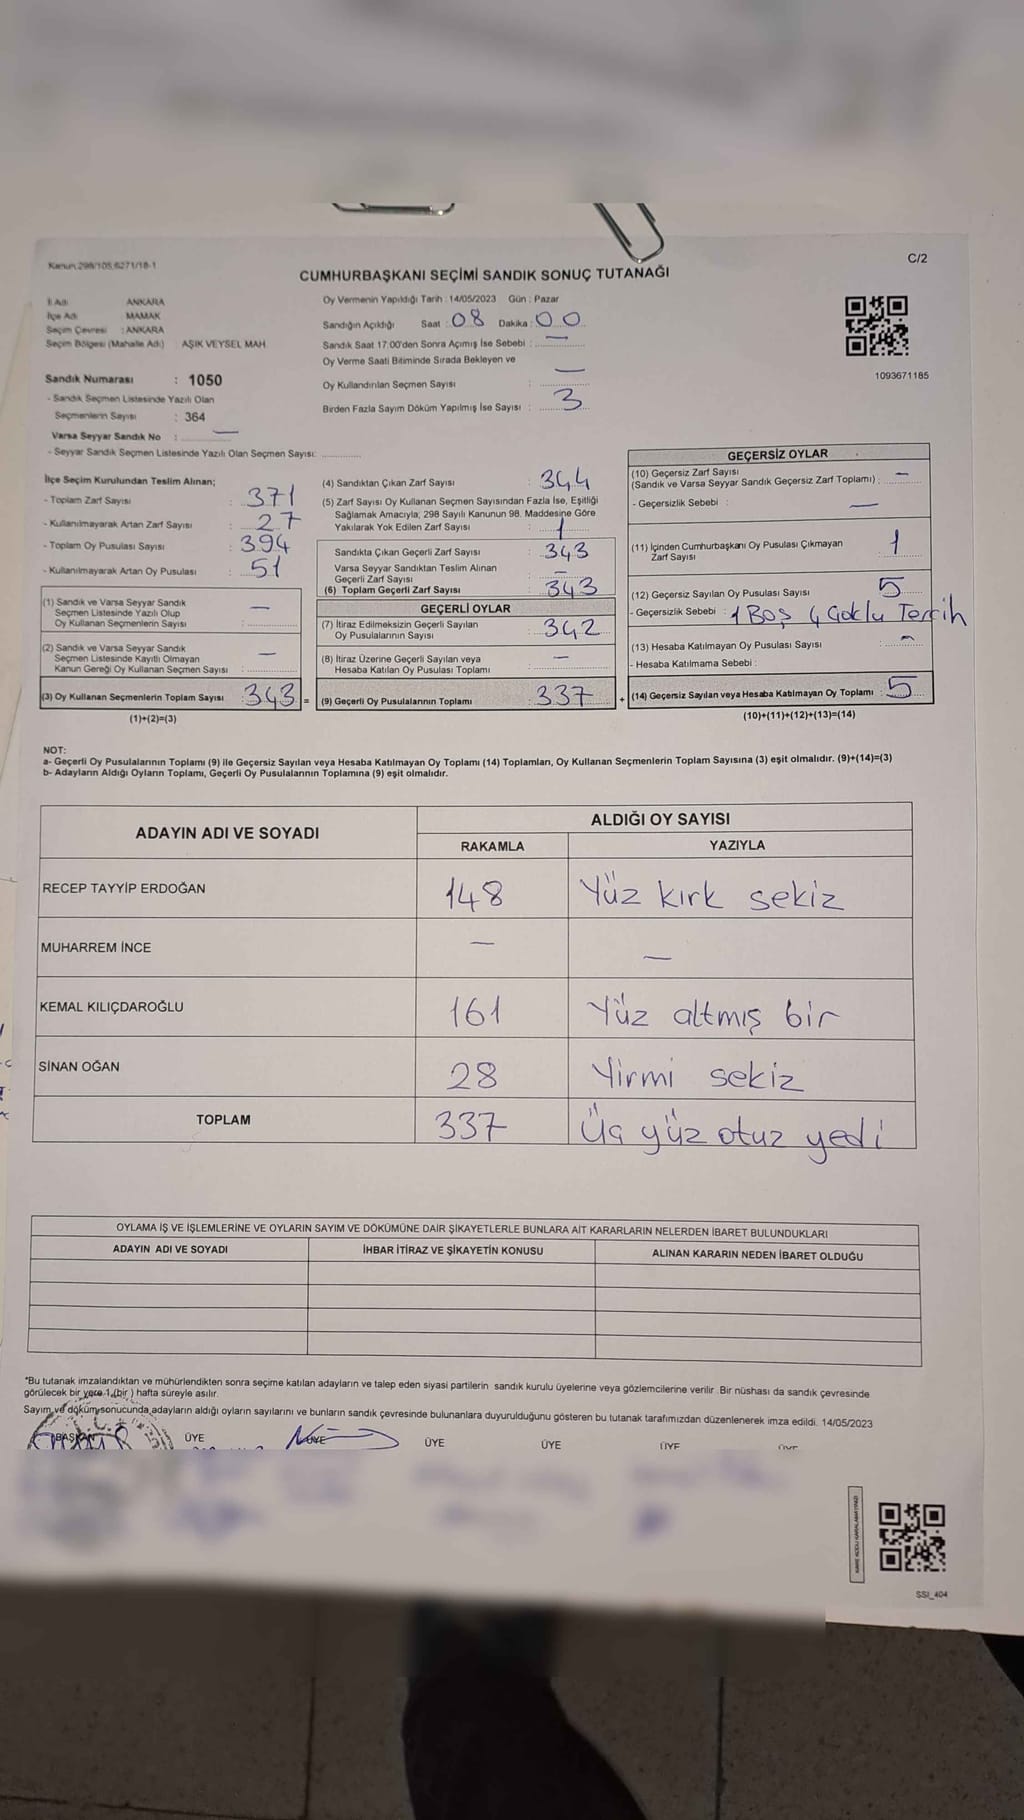 Kanun 298/105,6271/18-1
C/2
CUMHURBAŞKANI SEÇİMİ SANDIK SONUÇ TUTANAĞI
İl Adı : ANKARA
İlçe Adı : MAMAK
Seçim Çevresi : ANKARA
Seçim Bölgesi (Mahalle Adı) AŞIK VEYSEL MAH.
Sandık Numarası : 1050
- Sandık Seçmen Listesinde Yazılı Olan
Seçmenlerin Sayısı : 364
Varsa Seyyar Sandık No : —
- Seyyar Sandık Seçmen Listesinde Yazılı Olan Seçmen Sayısı:
Oy Vermenin Yapıldığı Tarih : 14/05/2023 Gün : Pazar
Sandığın Açıldığı Saat : 08 Dakika : 00
Sandık Saat 17:00'den Sonra Açımış İse Sebebi : —
Oy Verme Saati Bitiminde Sırada Bekleyen ve
Oy Kullandırılan Seçmen Sayısı : —
Birden Fazla Sayım Döküm Yapılmış İse Sayısı : 3
1093671185
İlçe Seçim Kurulundan Teslim Alınan;
- Toplam Zarf Sayısı : 371
- Kullanılmayarak Artan Zarf Sayısı : 27
- Toplam Oy Pusulası Sayısı : 394
- Kullanılmayarak Artan Oy Pusulası : 51
(1) Sandık ve Varsa Seyyar Sandık
Seçmen Listesinde Yazılı Olup
Oy Kullanan Seçmenlerin Sayısı : —
(2) Sandık ve Varsa Seyyar Sandık
Seçmen Listesinde Kayıtlı Olmayan
Kanun Gereği Oy Kullanan Seçmen Sayısı : —
(3) Oy Kullanan Seçmenlerin Toplam Sayısı : 343 =
(1)+(2)=(3)
(4) Sandıktan Çıkan Zarf Sayısı : 344
(5) Zarf Sayısı Oy Kullanan Seçmen Sayısından Fazla İse, Eşitliği
Sağlamak Amacıyla; 298 Sayılı Kanunun 98. Maddesine Göre
Yakılarak Yok Edilen Zarf Sayısı : 1
Sandıkta Çıkan Geçerli Zarf Sayısı : 343
Varsa Seyyar Sandıktan Teslim Alınan
Geçerli Zarf Sayısı : —
(6) Toplam Geçerli Zarf Sayısı : 343
GEÇERLİ OYLAR
(7) İtiraz Edilmeksizin Geçerli Sayılan
Oy Pusulalarının Sayısı : 342
(8) İtiraz Üzerine Geçerli Sayılan veya
Hesaba Katılan Oy Pusulası Toplamı : —
(9) Geçerli Oy Pusulalarının Toplamı : 337 +
GEÇERSİZ OYLAR
(10) Geçersiz Zarf Sayısı
(Sandık ve Varsa Seyyar Sandık Geçersiz Zarf Toplamı) : —
- Geçersizlik Sebebi : —
(11) İçinden Cumhurbaşkanı Oy Pusulası Çıkmayan
Zarf Sayısı : 1
(12) Geçersiz Sayılan Oy Pusulası Sayısı : 5
- Geçersizlik Sebebi : 1 Boş 4 Çoklu Tercih
(13) Hesaba Katılmayan Oy Pusulası Sayısı : —
- Hesaba Katılmama Sebebi :
(14) Geçersiz Sayılan veya Hesaba Katılmayan Oy Toplamı : 5
(10)+(11)+(12)+(13)=(14)
NOT:
a- Geçerli Oy Pusulalarının Toplamı (9) ile Geçersiz Sayılan veya Hesaba Katılmayan Oy Toplamı (14) Toplamları, Oy Kullanan Seçmenlerin Toplam Sayısına (3) eşit olmalıdır. (9)+(14)=(3)
b- Adayların Aldığı Oyların Toplamı, Geçerli Oy Pusulalarının Toplamına (9) eşit olmalıdır.
ADAYIN ADI VE SOYADI ALDIĞI OY SAYISI
RAKAMLA YAZIYLA
RECEP TAYYİP ERDOĞAN 148 Yüz kırk sekiz
MUHARREM İNCE — —
KEMAL KILIÇDAROĞLU 161 Yüz altmış bir
SİNAN OĞAN 28 Yirmi sekiz
TOPLAM 337 Üç yüz otuz yedi
OYLAMA İŞ VE İŞLEMLERİNE VE OYLARIN SAYIM VE DÖKÜMÜNE DAİR ŞİKAYETLERLE BUNLARA AİT KARARLARIN NELERDEN İBARET BULUNDUKLARI
ADAYIN ADI VE SOYADI İHBAR İTİRAZ VE ŞİKAYETİN KONUSU ALINAN KARARIN NEDEN İBARET OLDUĞU
*Bu tutanak imzalandıktan ve mühürlendikten sonra seçime katılan adayların ve talep eden siyasi partilerin sandık kurulu üyelerine veya gözlemcilerine verilir .Bir nüshası da sandık çevresinde
görülecek bir yere 1 (bir ) hafta süreyle asılır.
Sayım ve döküm sonucunda adayların aldığı oyların sayılarını ve bunların sandık çevresinde bulunanlara duyurulduğunu gösteren bu tutanak tarafımızdan düzenlenerek imza edildi. 14/05/2023
BAŞKAN ÜYE ÜYE ÜYE ÜYE ÜYE ÜYE
SSI_404